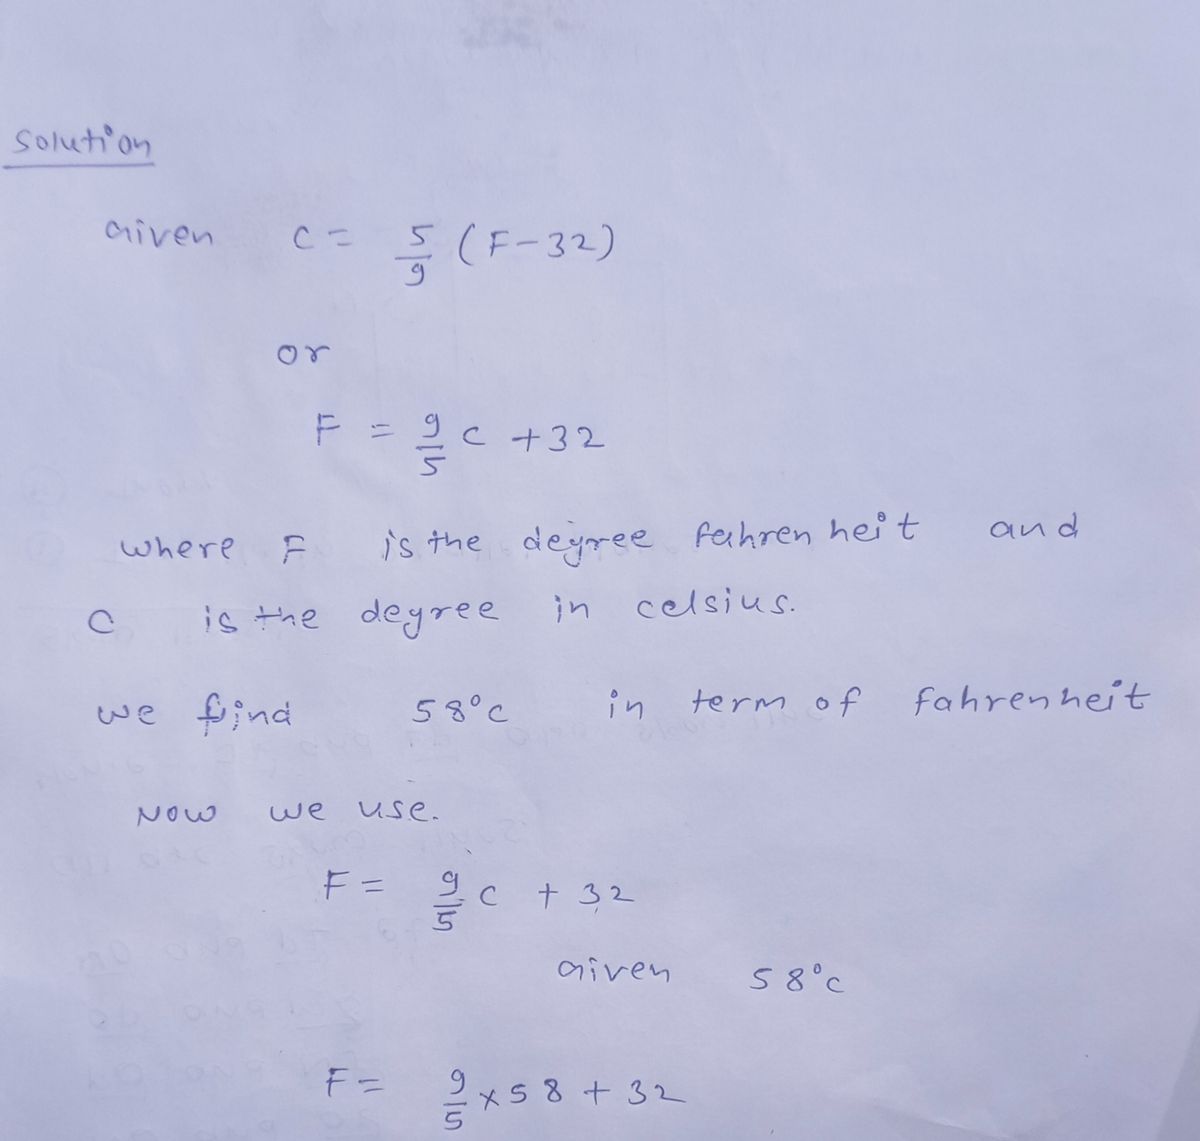 Solution
Given C = 5/9 (F-32)
or
F = 9/5 C +32
where F is the degree fahrenheit and
C is the degree in celsius.
we find 58°C in term of fahrenheit
Now we use.
F = 9/5 C + 32
Given 58°C
F = 9/5 × 58 + 32